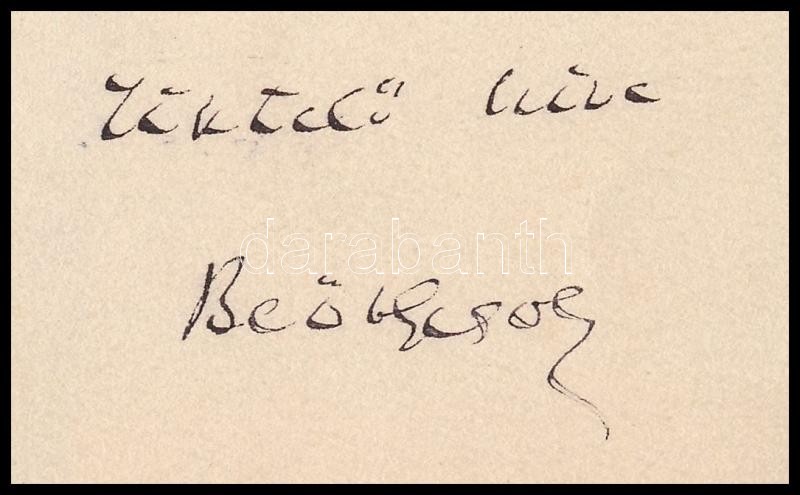 tisztelő híve
darabanth
Beöthy Zsolt